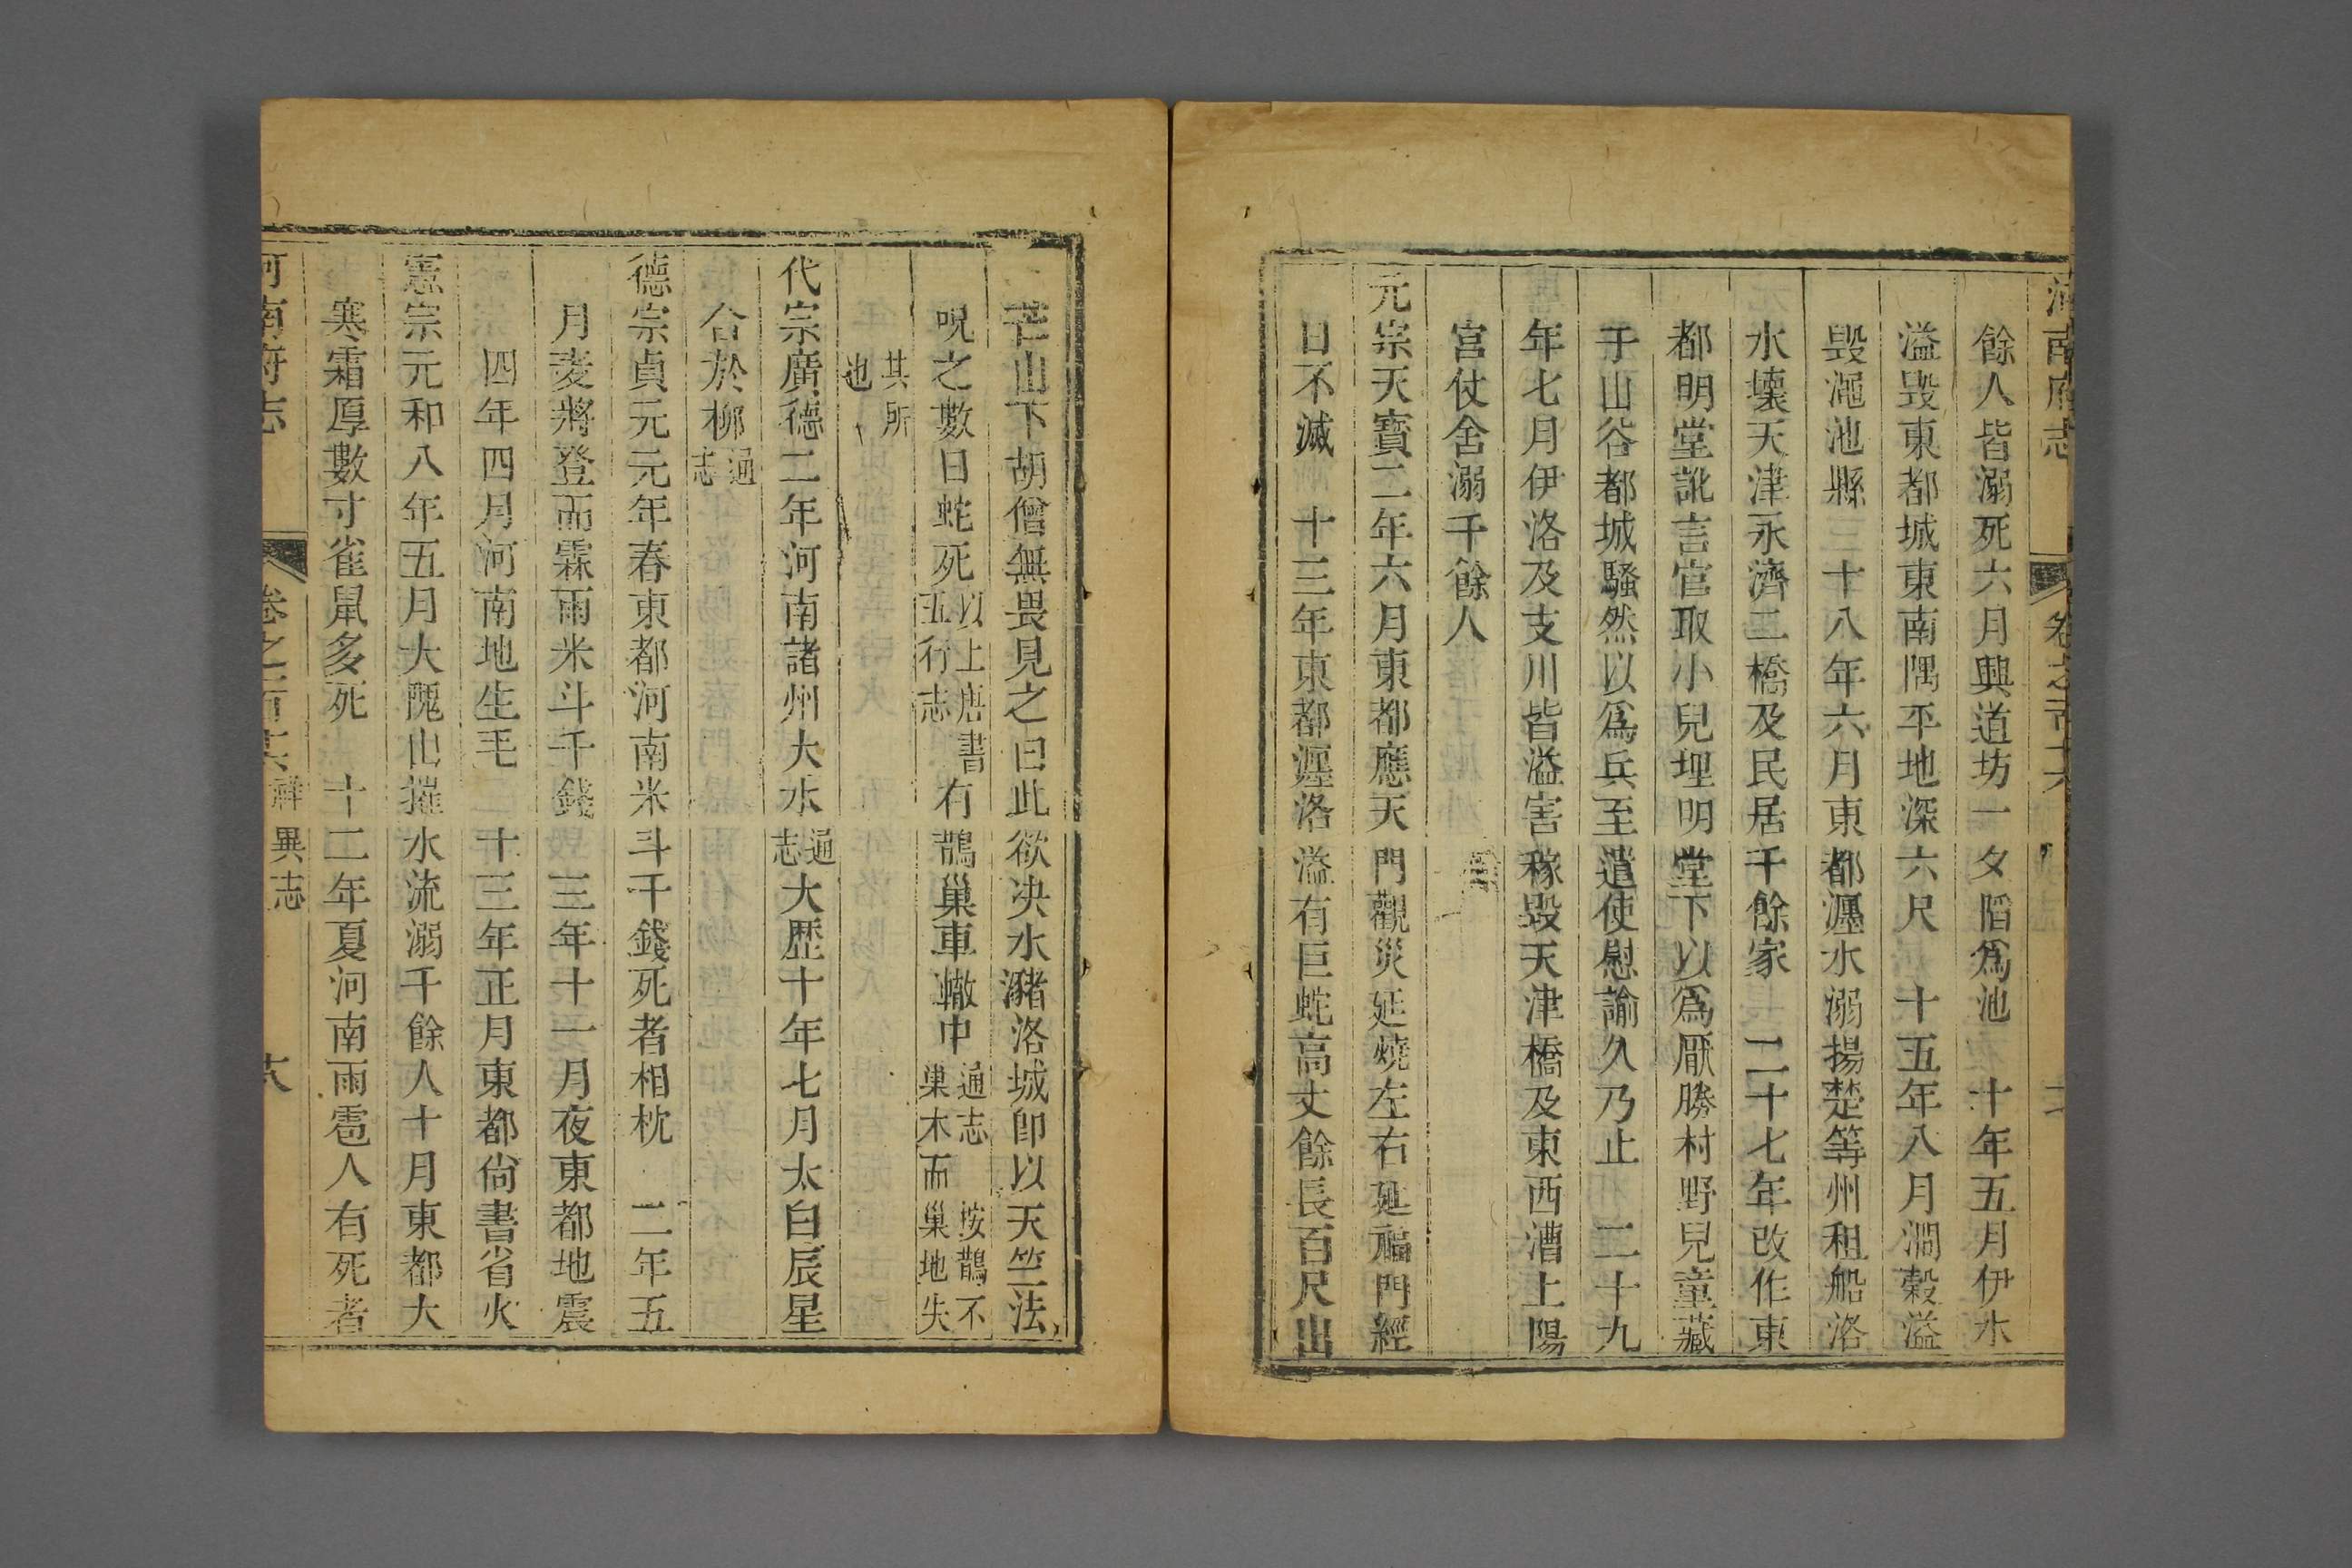 河南府志 卷之百十六
餘人皆溺死六月興道坊一夕陷爲池 十年五月伊水
溢毀東都城東南隅平地深六尺 十五年八月澗穀溢
毀澠池縣 十八年六月東都瀍水溺揚楚等州租船洛
水壞天津永濟二橋及民居千餘家 二十七年改作東
都明堂訛言官取小兒埋明堂下以爲厭勝村野兒童藏
于山谷都城騷然以爲兵至遣使慰諭久乃止 二十九
年七月伊洛及支川皆溢害稼毀天津橋及東西漕上陽
宮仗舍溺千餘人
元宗天寶二年六月東都應天門觀災延燒左右延福門經
日不滅 十三年東都瀍洛溢有巨蛇高丈餘長百尺出
芒山下胡僧無畏見之曰此欲决水瀦洛城卽以天竺法
呪之數日蛇死以上唐書五行志有鵲巢車轍中通志 按鵲不巢木而巢地失
其所也
代宗廣德二年河南諸州大水通志大歷十年七月太白辰星
合於柳通志
德宗貞元元年春東都河南米斗千錢死者相枕 二年五
月麥將登而霖雨米斗千錢 三年十一月夜東都地震
四年四月河南地生毛 十三年正月東都尙書省火
憲宗元和八年五月大隗山摧水流溺千餘人十月東都大
寒霜厚數寸雀鼠多死 十二年夏河南雨雹人有死者
河南府志 卷之百十六 祥異志